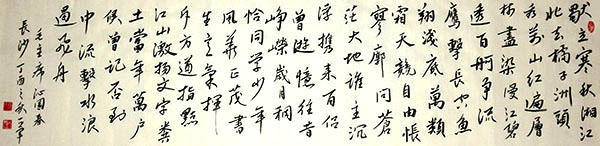 獨立寒秋湘江
北去橘子洲頭
看萬山紅遍層
林盡染漫江碧
透百舸争流
鷹擊長空魚
翔淺底萬類
霜天競自由悵
寥廓問蒼
茫大地誰主沉
浮攜來百侣
曾遊憶往昔
崢嶸歲月稠
恰同學少年
風華正茂書
生意氣揮
斥方遒指點
江山激揚文字糞
土當年萬户
侯曾記否到
中流擊水浪
遏飛舟
毛主席沁園春
長沙丁酉之秋